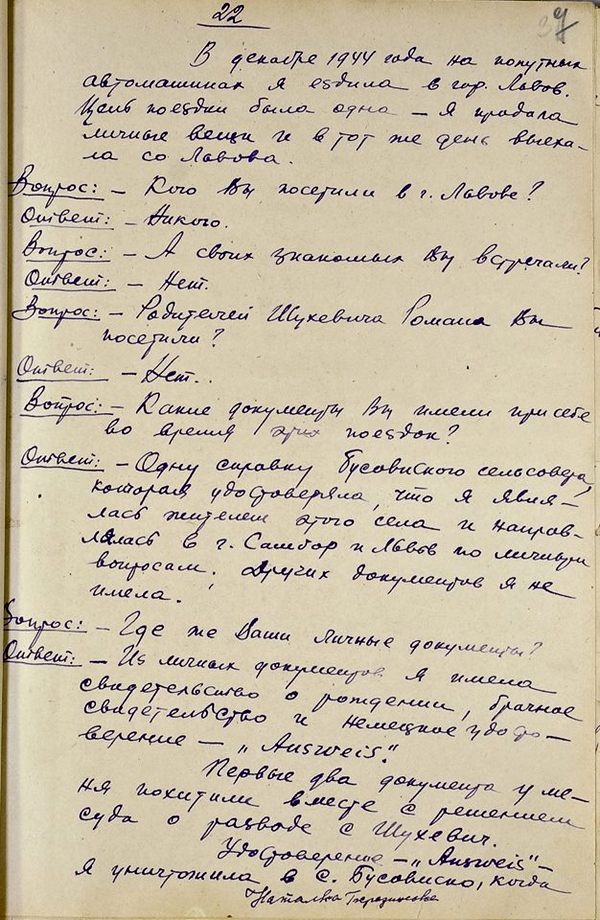 22
37
В декабре 1944 года на попутных
автомашинах я ездила в гор. Львов.
Цель поездки была одна – я продала
личные вещи и в тот же день выеха-
ла со Львова.
Вопрос: – Кого Вы посетили в г. Львове?
Ответ: – Никого.
Вопрос: – А своих знакомых Вы встречали?
Ответ: – Нет.
Вопрос: – Родителей Шухевича Романа Вы
посетили?
Ответ: – Нет.
Вопрос: – Какие документы Вы имели при себе
во время этих поездок?
Ответ: – Одну справку Бусовиского сельсовета,
которая удостоверяла, что я явля-
лась жителем этого села и направ-
лялась в г. Самбор и Львов по личным
вопросам. Других документов я не
имела.
Вопрос: – Где же Ваши личные документы?
Ответ: – Из личных документов я имела
свидетельство о рождении, брачное
свидетельство и немецкое удосто-
верение – „Ausweis".
Первые два документа у ме-
ня похитили вместе с решением
суда о разводе с Шухевич.
Удостоверение – „Ausweis" –
я уничтожила в с. Бусовиско, когда
Наталья